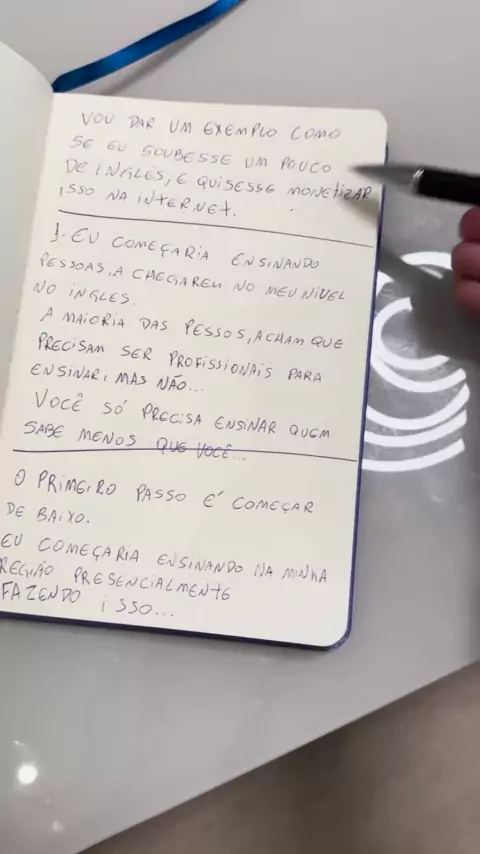 VOU DAR UM EXEMPLO COMO
SE EU SOUBESSE UM POUCO
DE INGLES, E QUISESSE MONETIZAR
ISSO NA INTERNET.
1. EU COMEÇARIA ENSINANDO
PESSOAS, A CHEGAREM NO MEU NIVEL
NO INGLES.
A MAIORIA DAS PESSOS, ACHAM QUE
PRECISAM SER PROFISSIONAIS PARA
ENSINAR, MAS NÃO...
VOCÊ SÓ PRECISA ENSINAR QUEM
SABE MENOS QUE VOCÊ...
O PRIMEIRO PASSO É COMEÇAR
DE BAIXO.
EU COMEÇARIA ENSINANDO NA MINHA
REGIÃO PRESENCIALMENTE
FAZENDO ISSO...